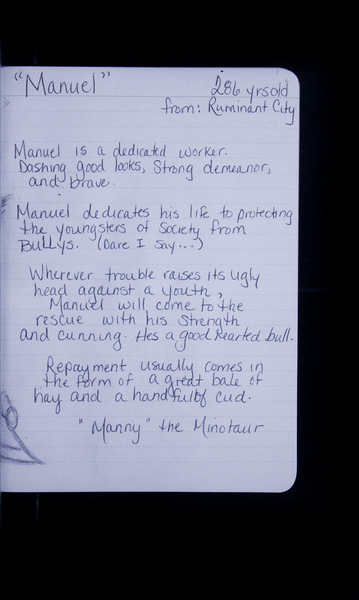 "Manuel"
286 yrsold
from: Ruminant City
Manuel is a dedicated worker.
Dashing good looks, Strong demeanor,
and brave.
Manuel dedicates his life to protecting
the youngsters of Society from
BullYs. (Dare I say...)
Wherever trouble raises its ugly
head against a youth,
Manuel will come to the
rescue with his strength
and cunning. Hes a good hearted bull.
Repayment usually comes in
the form of a great bale of
hay and a handfull of cud.
"Manny" the Minotaur